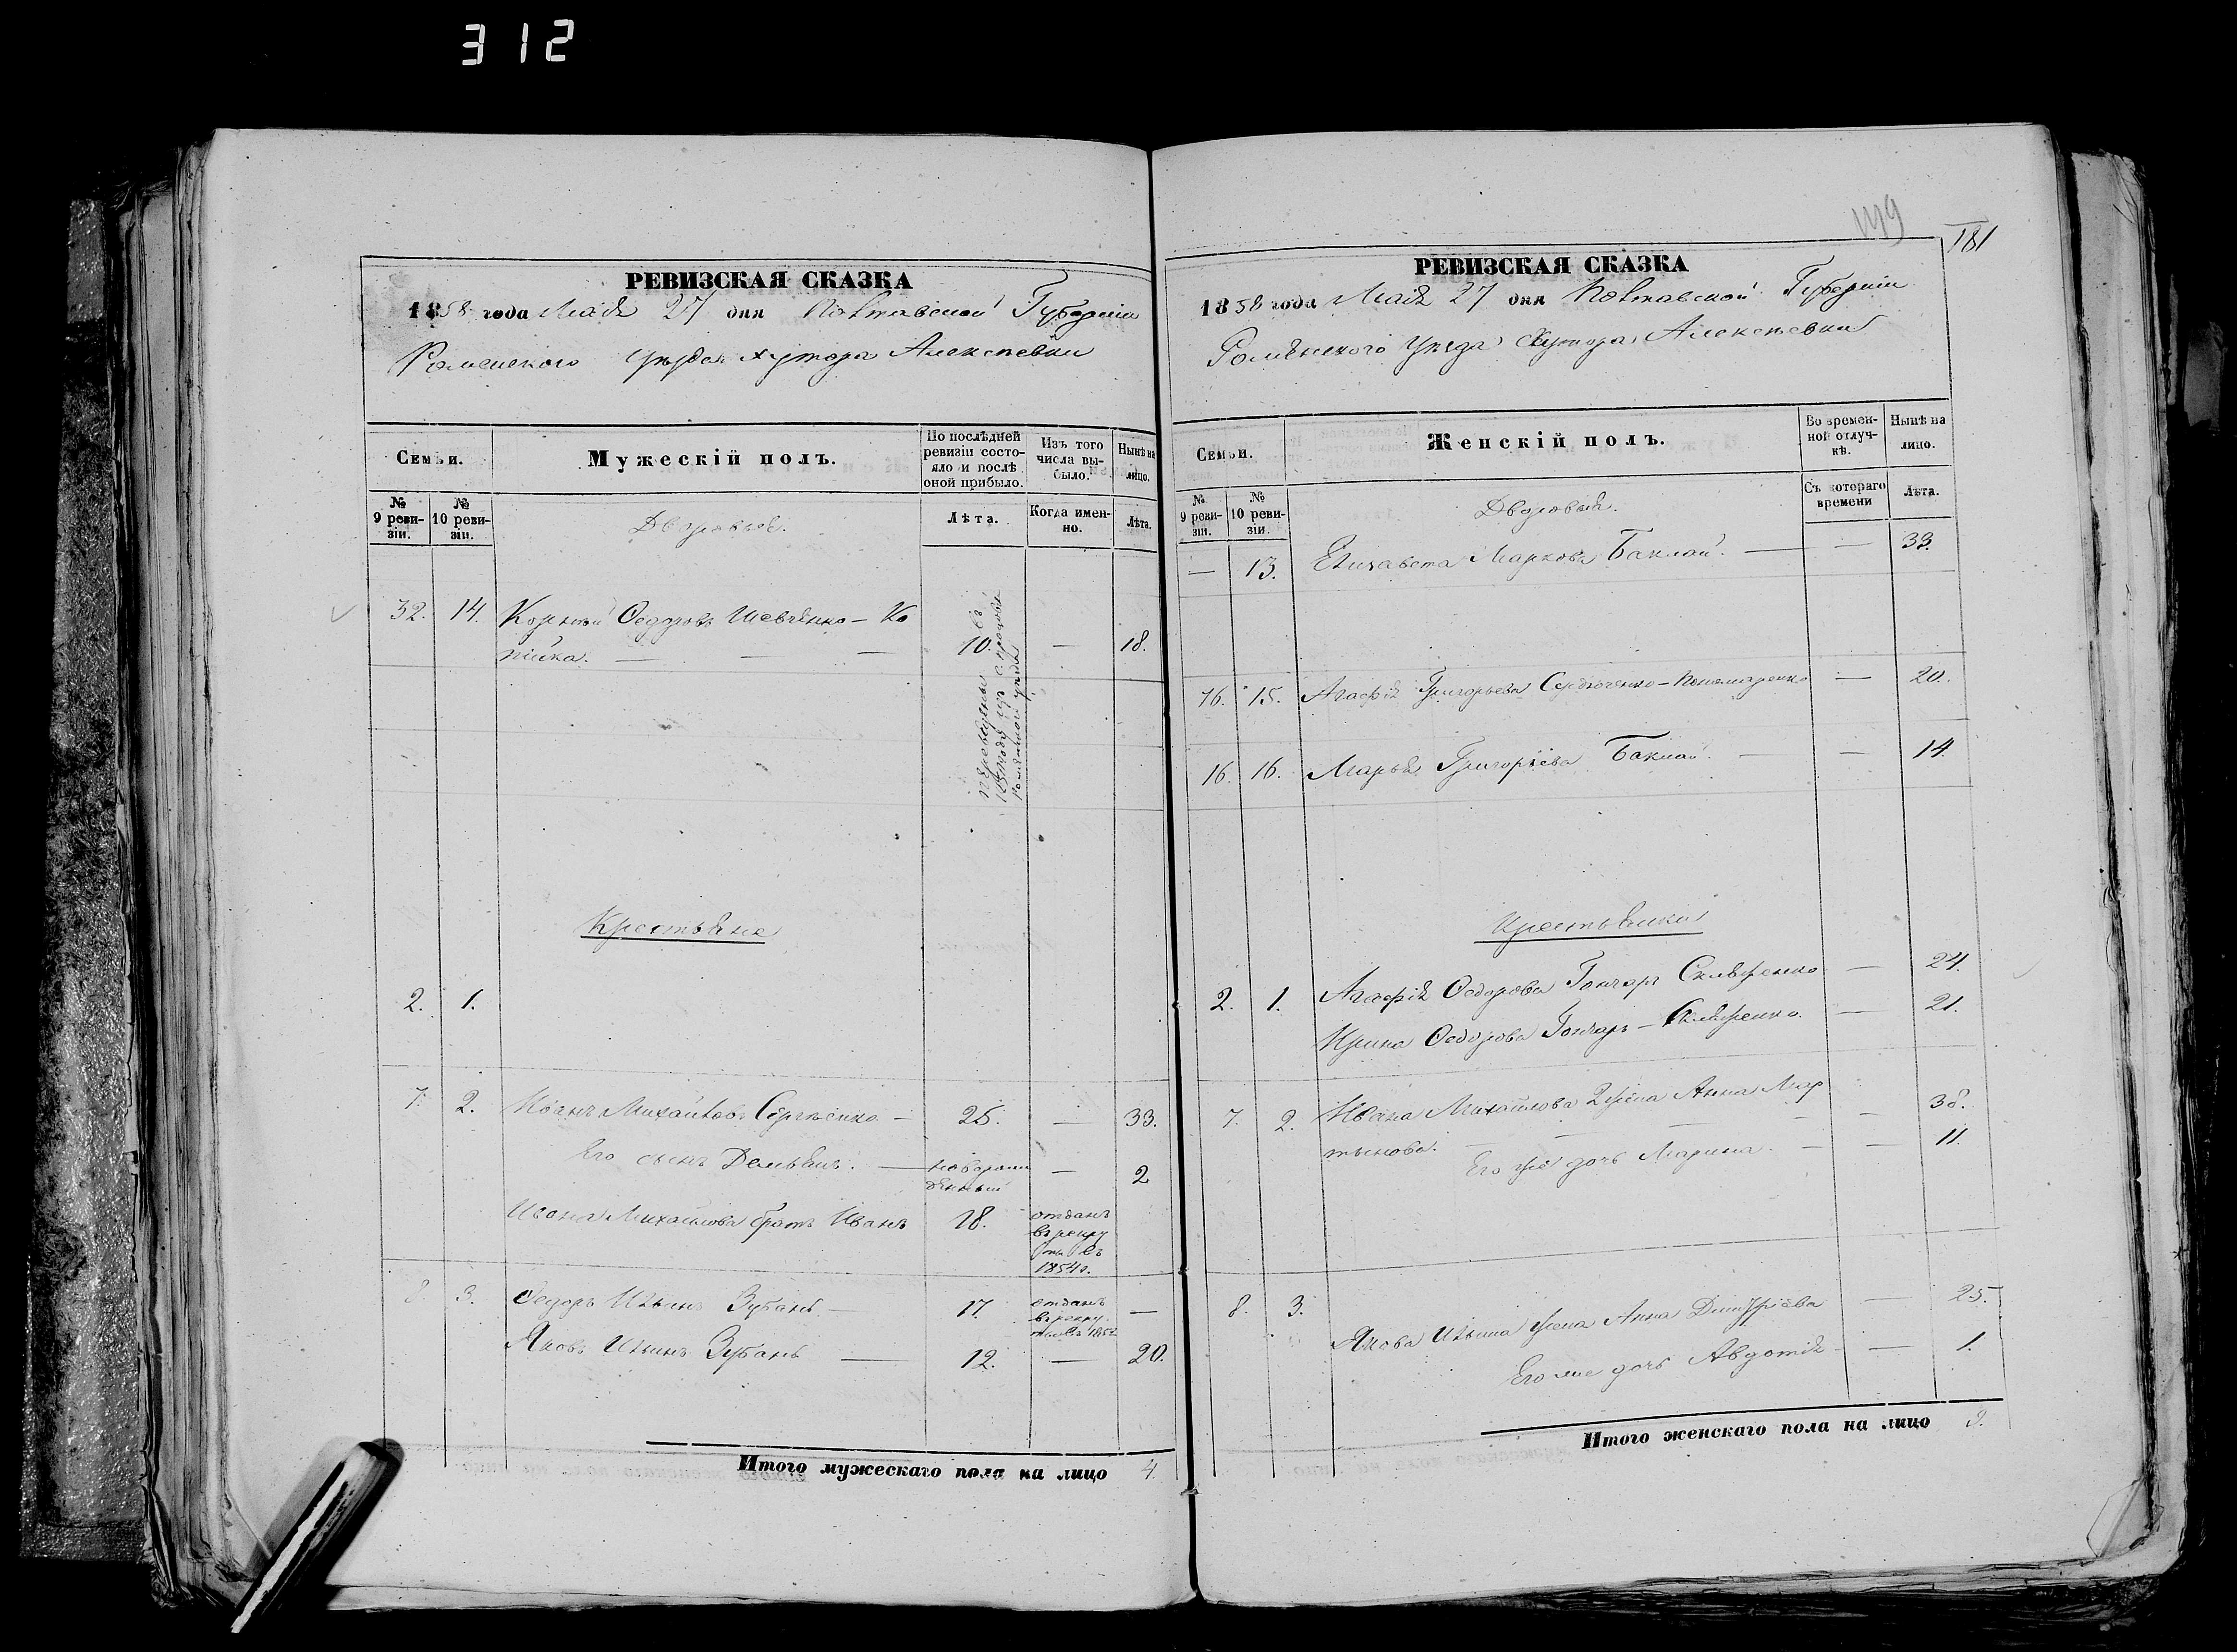 312
РЕВИЗСКАЯ СКАЗКА
1858 года Маія 27 дня Полтавской Губерніи
Роменского Уѣзда хутора Алексѣевки
Семьи.
Мужескій полъ.
По послѣдней ревизіи состояло и послѣ оной прибыло.
Изъ того числа выбыло.
Нынѣ на лицо.
№ 9 ревизіи.
№ 10 ревизіи.
Дворовые.
Лѣта.
Когда именно.
Лѣта.
32. 14. Корнѣй Федоровъ Шевченко – Ко
пійка. — — — 10. — 18.
Крестьяне
2. 1.
7. 2. Иванъ Михайловъ Сергѣенко – 25. — 33.
Его сынъ Демьянъ. — новорож
денный — 2
Ивана Михайлова братъ Иванъ 18. отданъ
въ рекру
ты въ
1854г.
8. 3. Федоръ Ильинъ Зубань — 17. отданъ
въ рекру.
ты въ 1852 —
Яковъ Ильинъ Зубань — 12. — 20.
Итого мужескаго пола на лицо 4.
149
181
РЕВИЗСКАЯ СКАЗКА
1858 года Маія 27 дня Полтавской Губерніи
Роменского Уѣзда Хутора Алексѣевки
Семьи.
Женскій полъ.
Во временной отлучкѣ.
Нынѣ на лицо.
№ 9 ревизіи.
№ 10 ревизіи.
Дворовыя.
Съ котораго времени
Лѣта.
— 13. Елизавета Маркова Баклай. — — 33.
16. 15. Агафія Григорьева Сердюченко – Пономаренко — 20.
16. 16. Марья Григорьева Баклай. — — 14.
Крестьянки
2. 1. Агафія Федорова Гончарь — 24.
Ирина Федорова Гончарь – — 21.
7. 2. Ивана Михайлова жена Анна Мар
тынова. — — — — 38.
Его же дочь Марина. — — 11.
8. 3. Якова Ильина жена Анна Дмитріева — 25.
Его же дочь Авдотія — 1.
Итого женскаго пола на лицо 9.